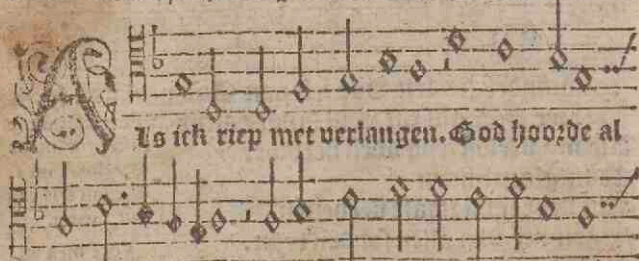 Als ick riep met verlangen. God hoorde al